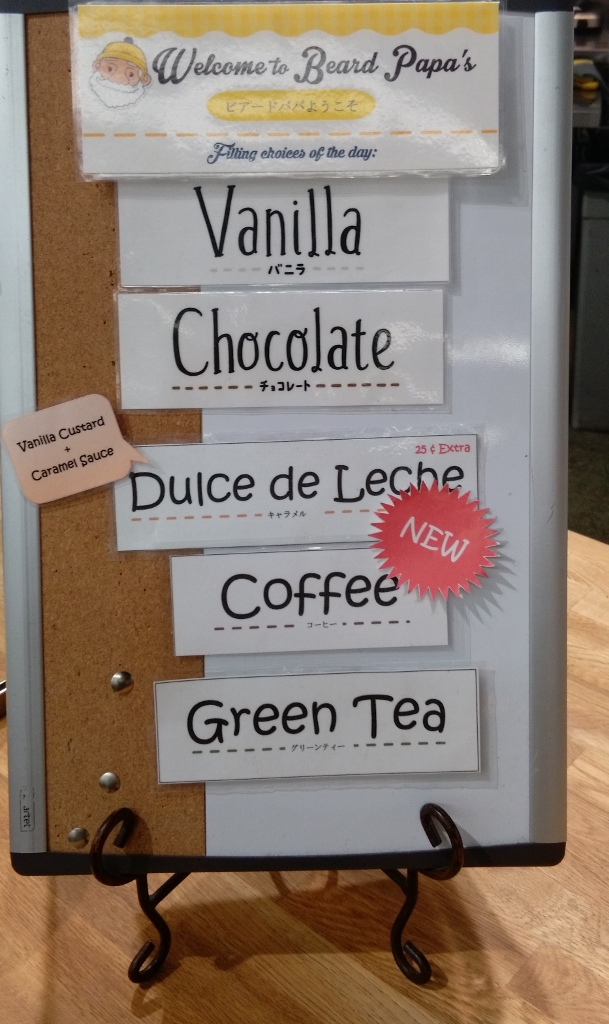 Welcome to Beard Papa's
ビアードパパようこそ
Filling choices of the day:
Vanilla
バニラ
Chocolate
チョコレート
Vanilla Custard
+
Caramel Sauce
25 ¢ Extra
Dulce de Leche
キャラメル
NEW
Coffee
コーヒー
Green Tea
グリーンティー